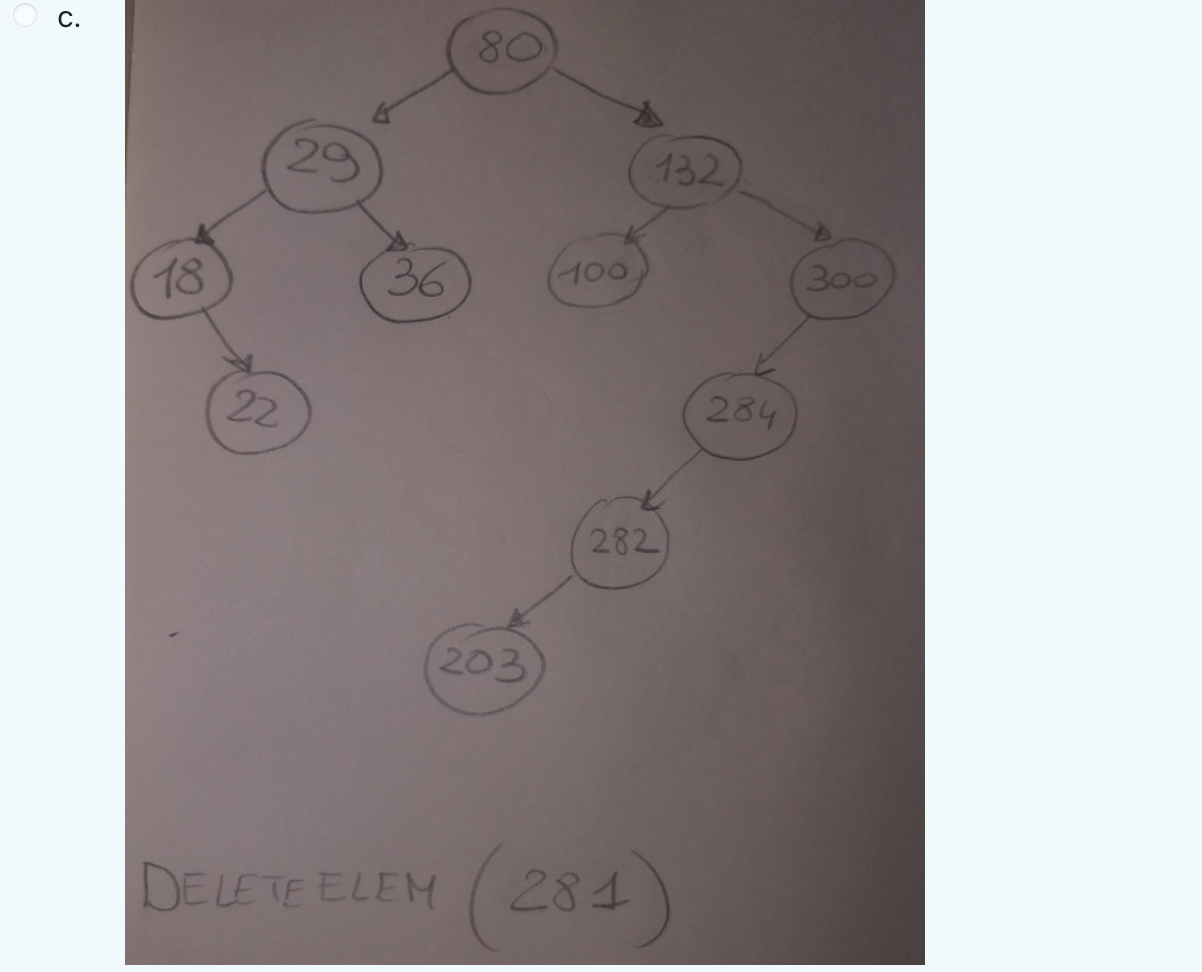 c.
80
29
132
18
36
100
300
22
284
282
203
DELETE ELEM (281)